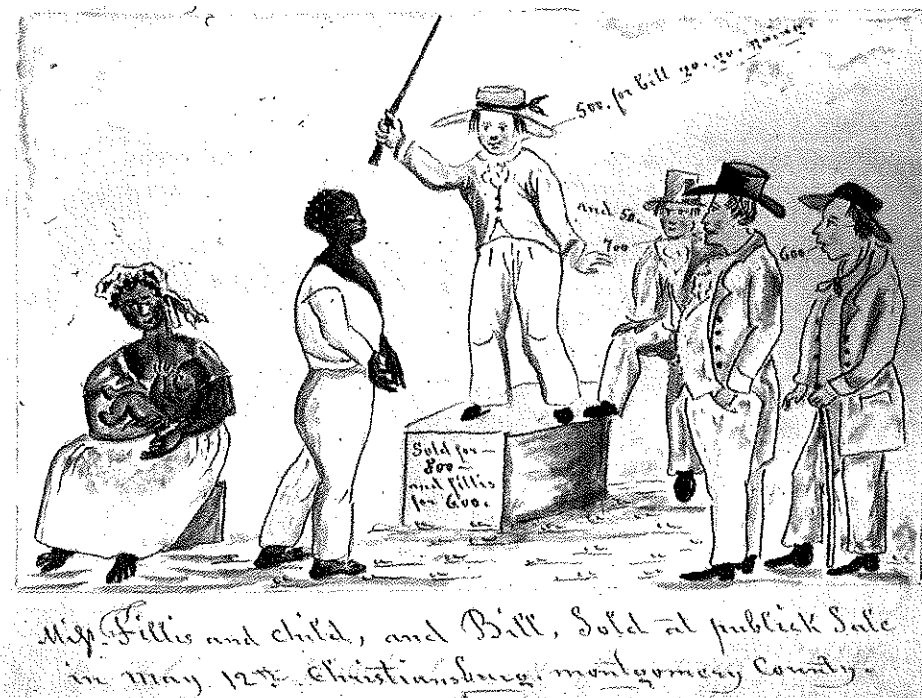 500. for Bill go. go. going.
and 50.
700
600
Sold for –
800 –
and fillis
for 600.
Miss Fillis and child, and Bill, Sold at publick Sale
in May 12th Christiansburg. montgomery County.